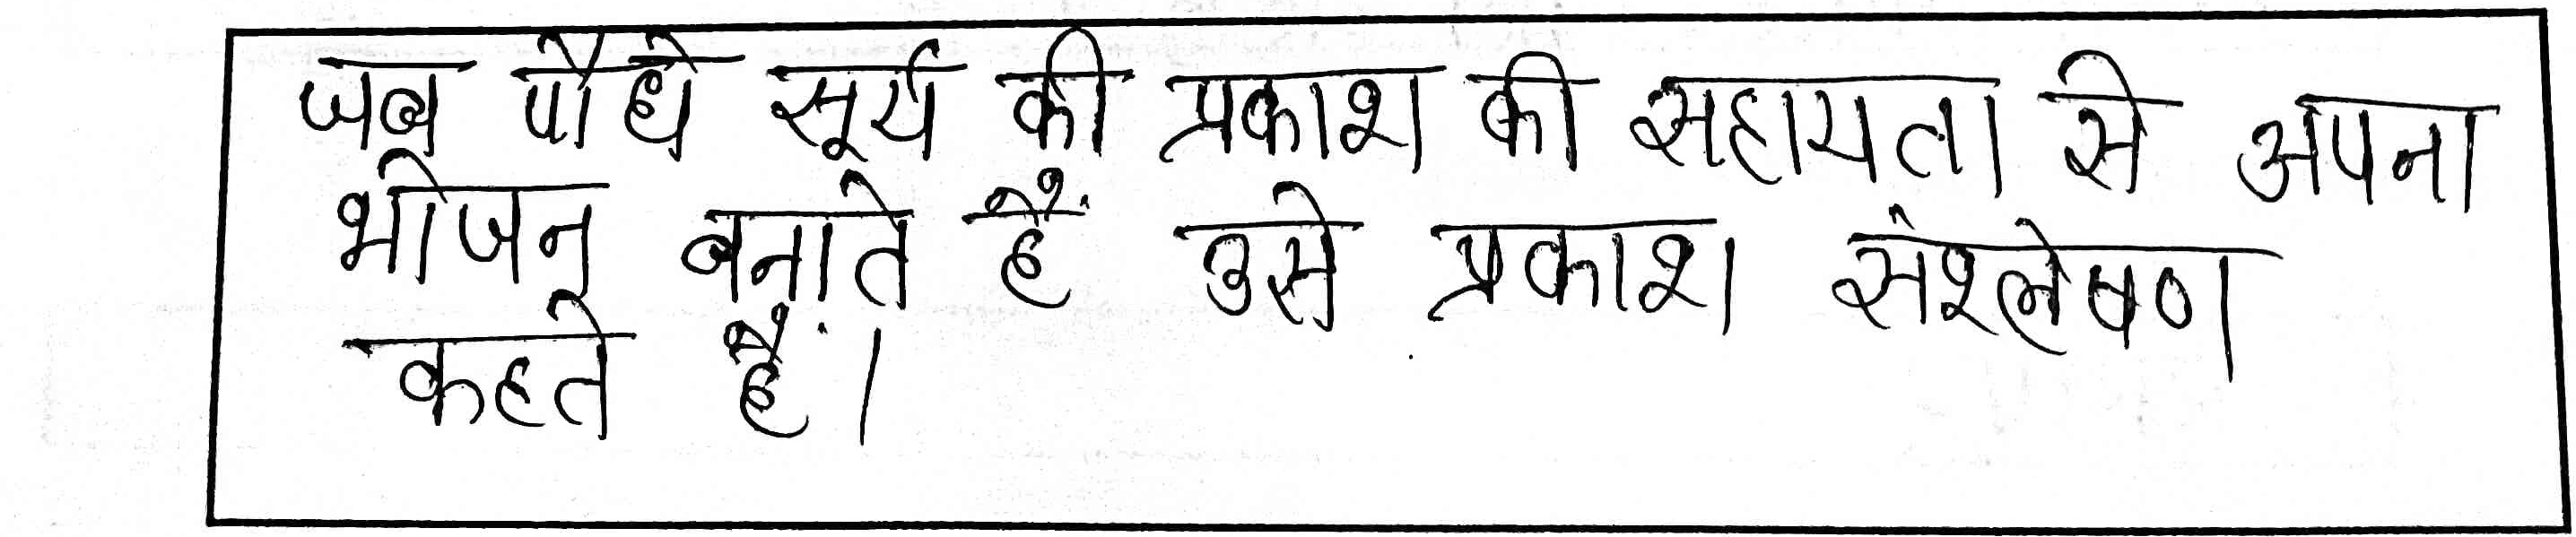 जब पौधे सूर्य की प्रकाश की सहायता से अपना
भोजन बनाते हैं उसे प्रकाश संश्लेषण
कहते हैं।